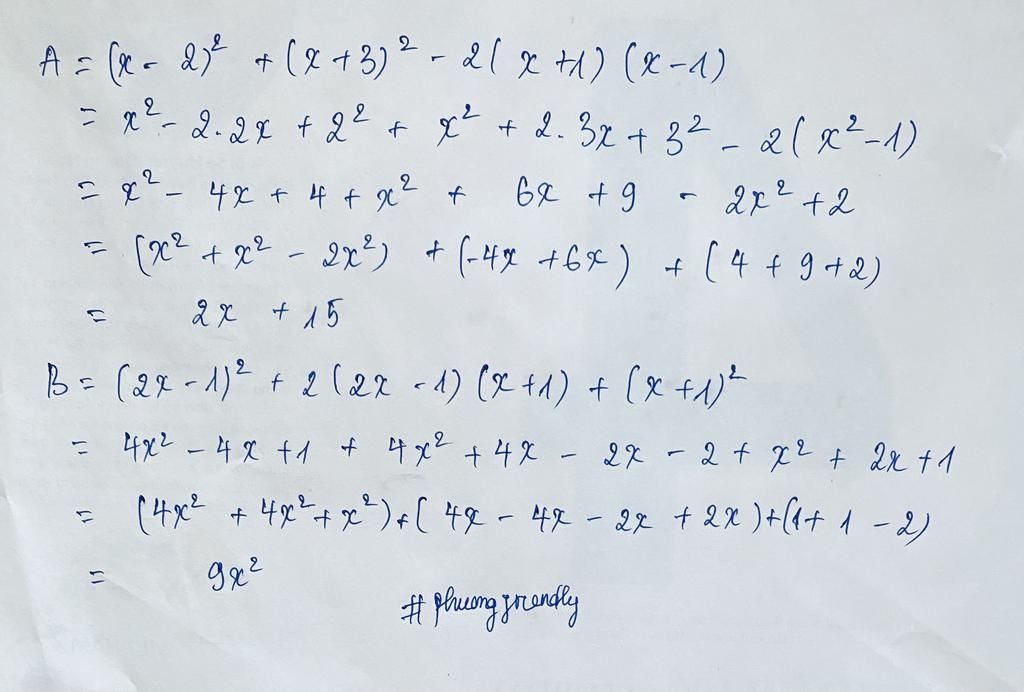 A = (x - 2)² + (x + 3)² - 2(x + 1)(x - 1)
= x² - 2.2x + 2² + x² + 2.3x + 3² - 2(x² - 1)
= x² - 4x + 4 + x² + 6x + 9 - 2x² + 2
= (x² + x² - 2x²) + (-4x + 6x) + (4 + 9 + 2)
= 2x + 15
B = (2x - 1)² + 2(2x - 1)(x + 1) + (x + 1)²
= 4x² - 4x + 1 + 4x² + 4x - 2x - 2 + x² + 2x + 1
= (4x² + 4x² + x²) + (4x - 4x - 2x + 2x) + (1 + 1 - 2)
= 9x²
# phuongfriendly